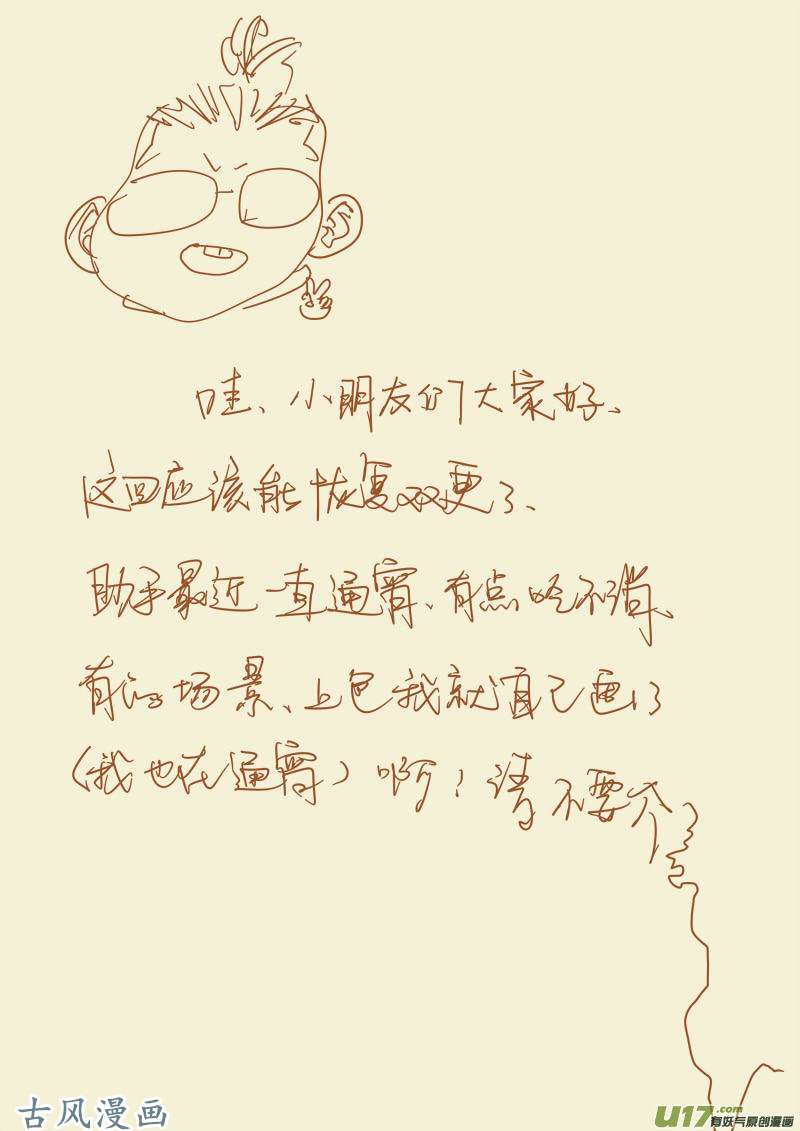 哇、小朋友们大家好、
这回应该能恢复双更了、
助手最近一直通宵、有点吃不消、
有的场景、上色我就自己画了
(我也在通宵) 啊! 请不要介
古风漫画
U17.com
有妖气原创漫画